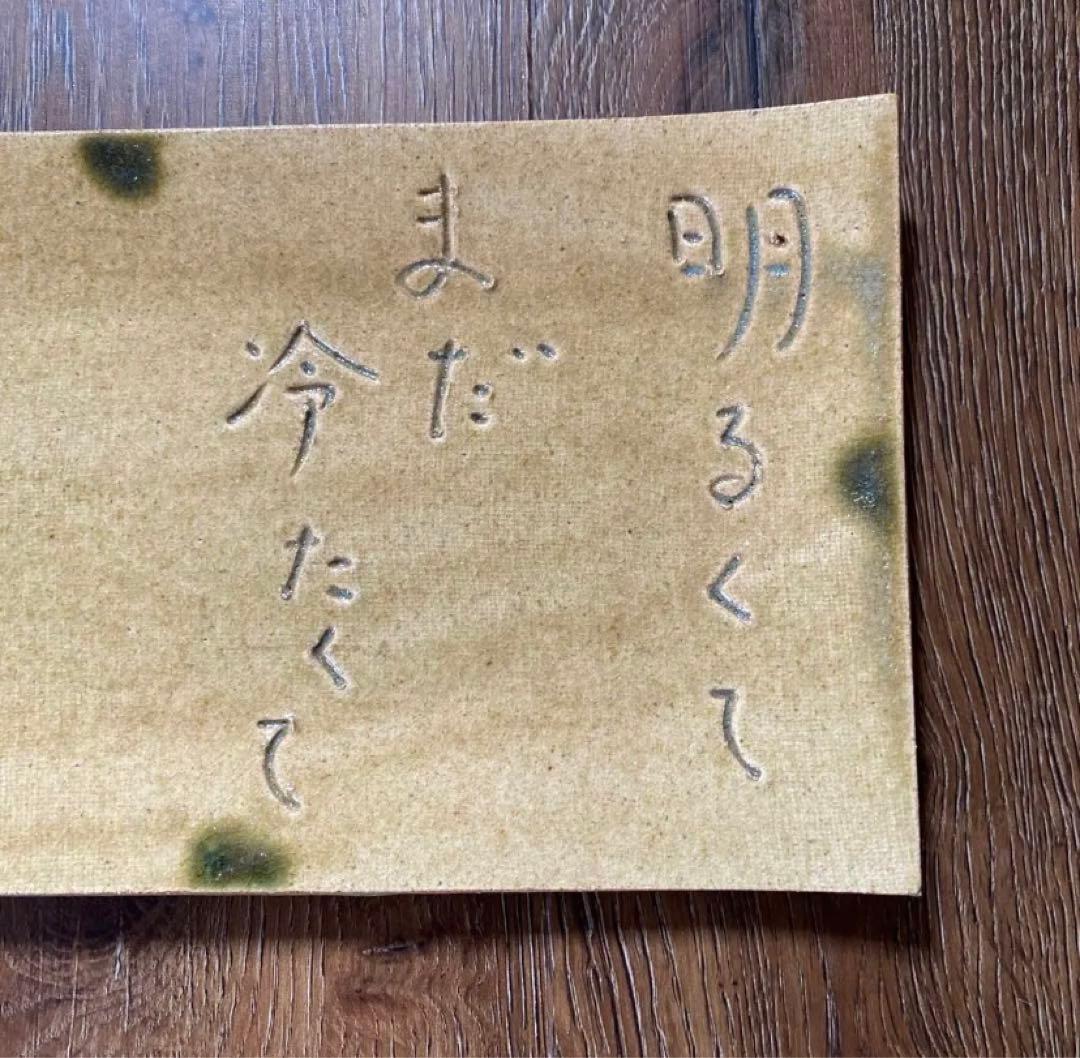 明るくて
まだ
冷たくて